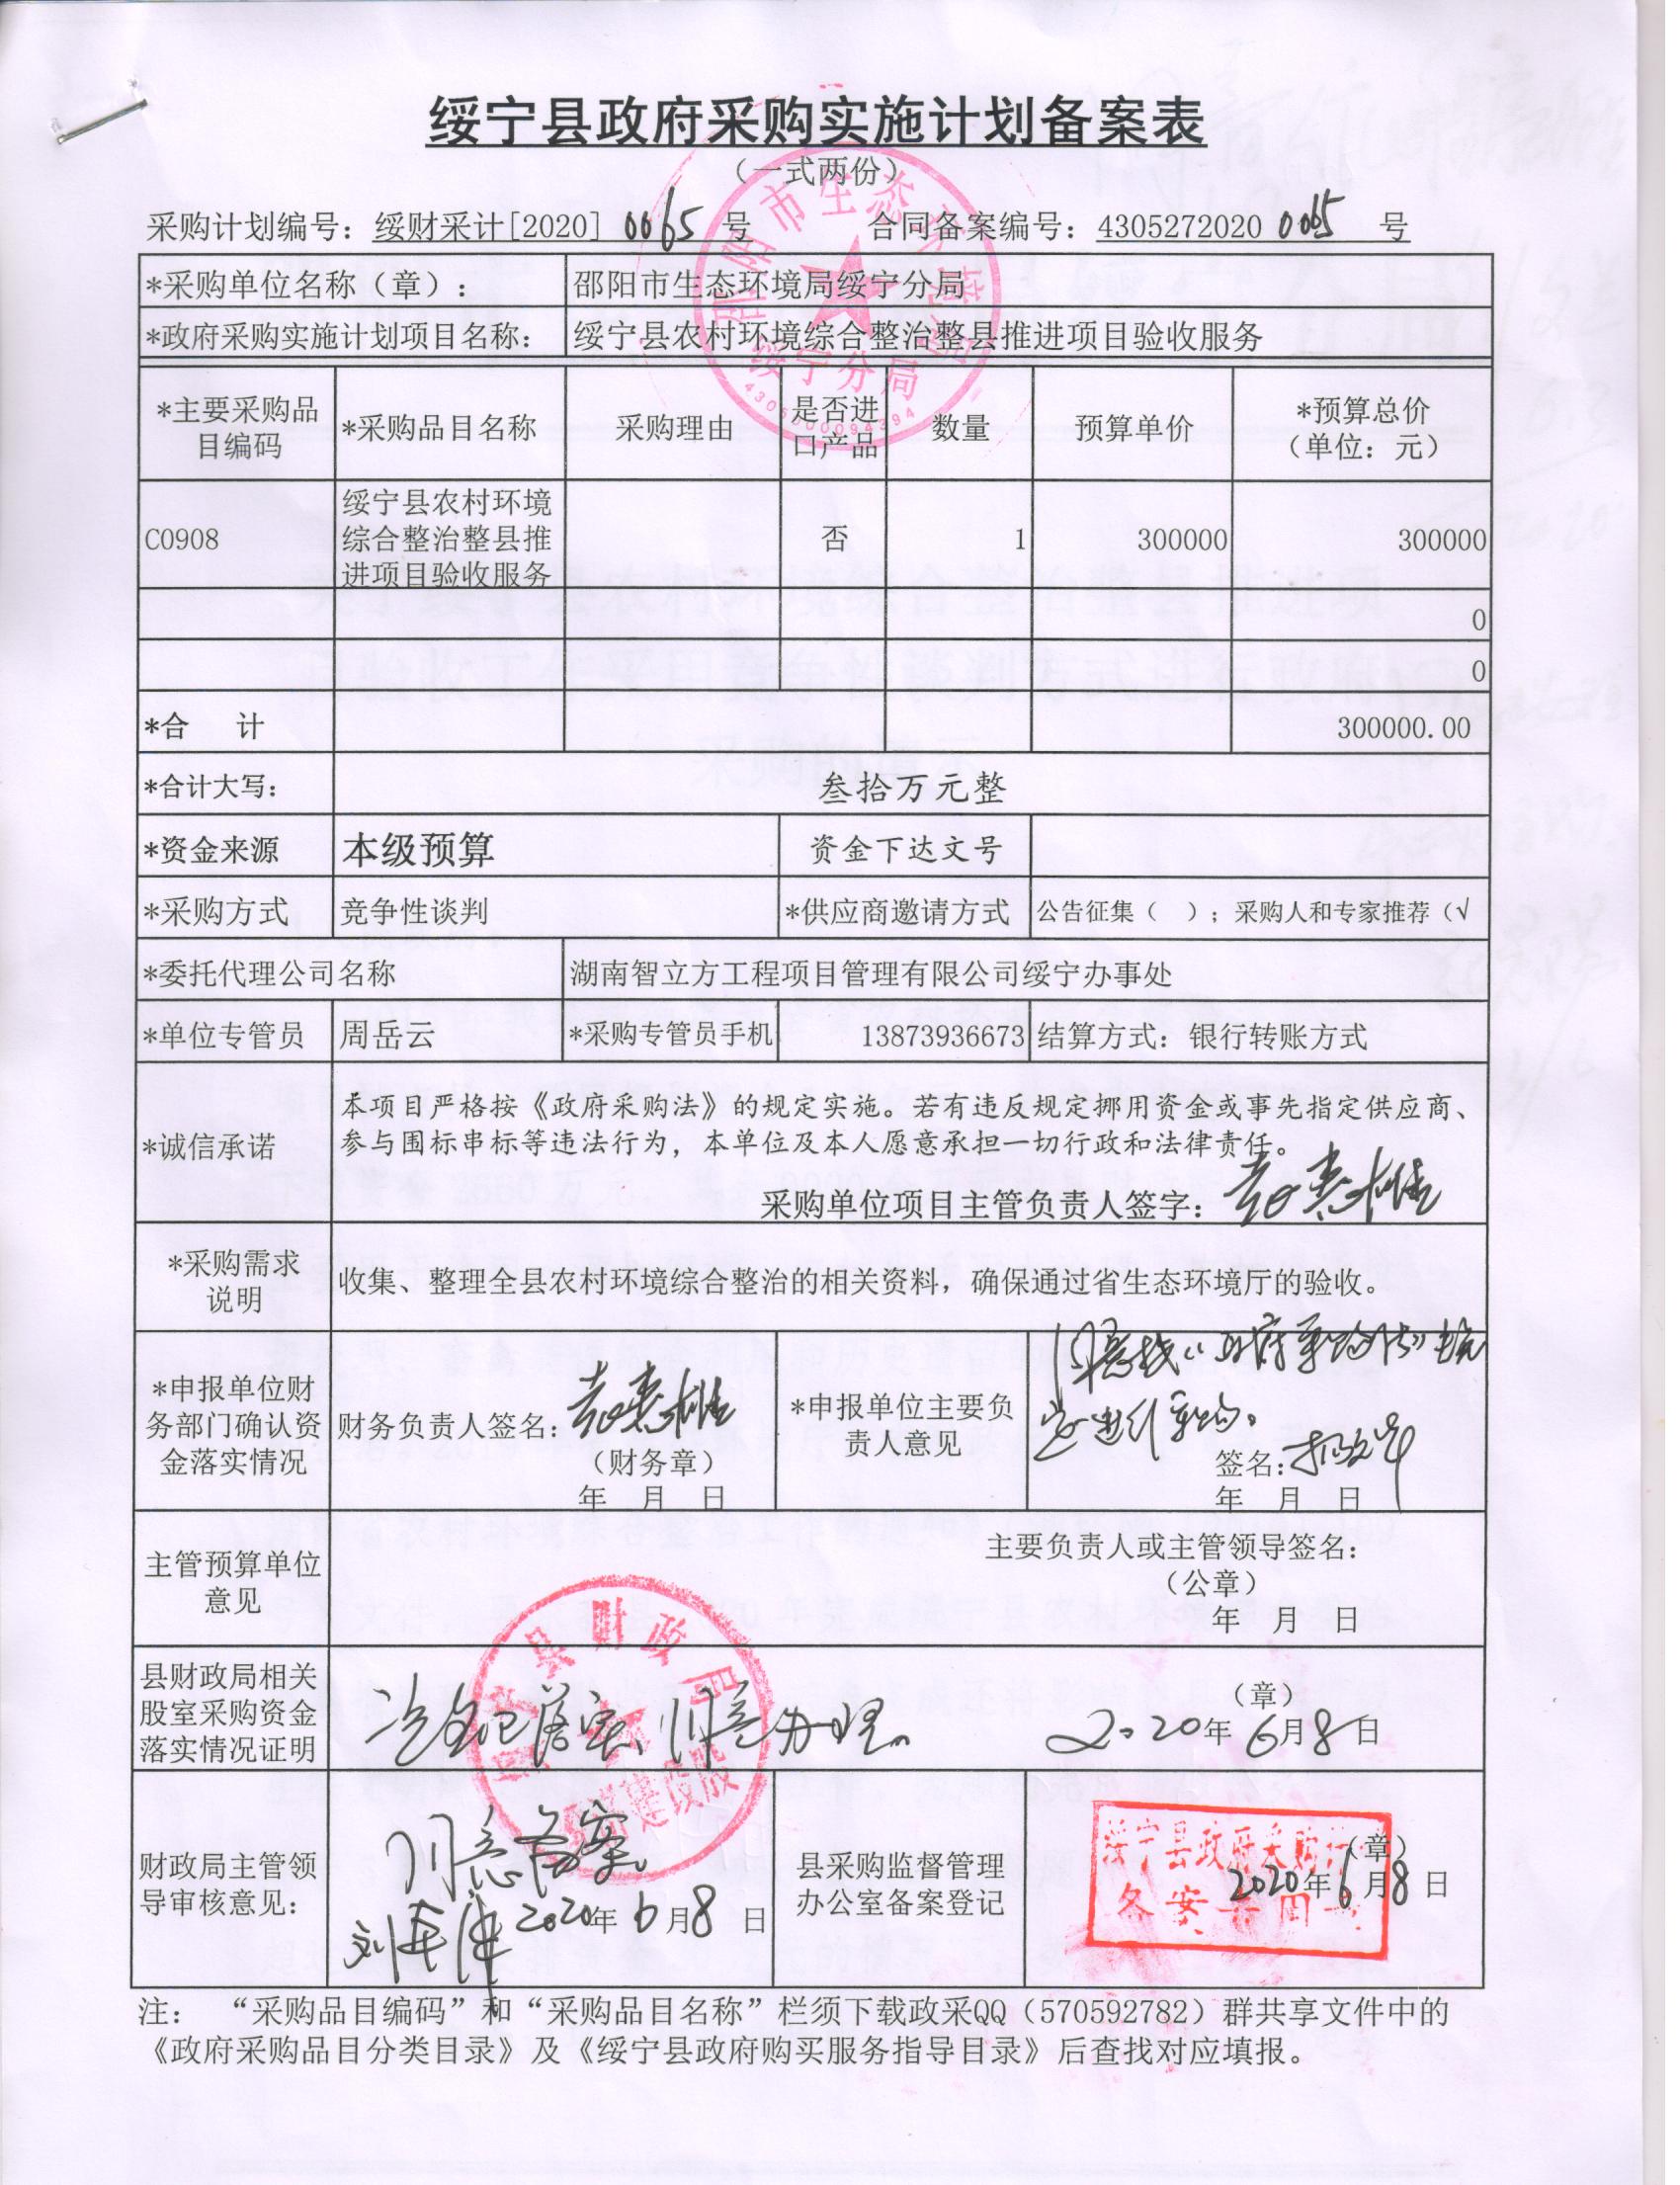 绥宁县政府采购实施计划备案表
（一式两份）
采购计划编号：绥财采计[2020] 0065 号 合同备案编号：4305272020 0065 号
*采购单位名称（章）： 邵阳市生态环境局绥宁分局
*政府采购实施计划项目名称： 绥宁县农村环境综合整治整县推进项目验收服务
*主要采购品目编码 *采购品目名称 采购理由 是否进口产品 数量 预算单价 *预算总价（单位：元）
C0908 绥宁县农村环境综合整治整县推进项目验收服务 否 1 300000 300000
0
0
*合 计 300000.00
*合计大写： 叁拾万元整
*资金来源 本级预算 资金下达文号
*采购方式 竞争性谈判 *供应商邀请方式 公告征集（ ）；采购人和专家推荐（√
*委托代理公司名称 湖南智立方工程项目管理有限公司绥宁办事处
*单位专管员 周岳云 *采购专管员手机 13873936673 结算方式：银行转账方式
*诚信承诺
本项目严格按《政府采购法》的规定实施。若有违反规定挪用资金或事先指定供应商、
参与围标串标等违法行为，本单位及本人愿意承担一切行政和法律责任。
采购单位项目主管负责人签字：
*采购需求说明 收集、整理全县农村环境综合整治的相关资料，确保通过省生态环境厅的验收。
*申报单位财务部门确认资金落实情况 财务负责人签名：
（财务章）
年 月 日
*申报单位主要负责人意见
同意按《政府采购法》规
定进行采购。
签名：
年 月 日
主管预算单位意见
主要负责人或主管领导签名：
（公章）
年 月 日
县财政局相关股室采购资金落实情况证明
资金已落实，同意办理。
（章）
2020年6月8日
财政局主管领导审核意见：
同意备案
2020年6月8日
县采购监督管理办公室备案登记
（章）
2020年6月8日
注： “采购品目编码”和“采购品目名称”栏须下载政采QQ（570592782）群共享文件中的
《政府采购品目分类目录》及《绥宁县政府购买服务指导目录》后查找对应填报。
邵阳市生态环境局
绥宁分局
4305000094394
县财政局